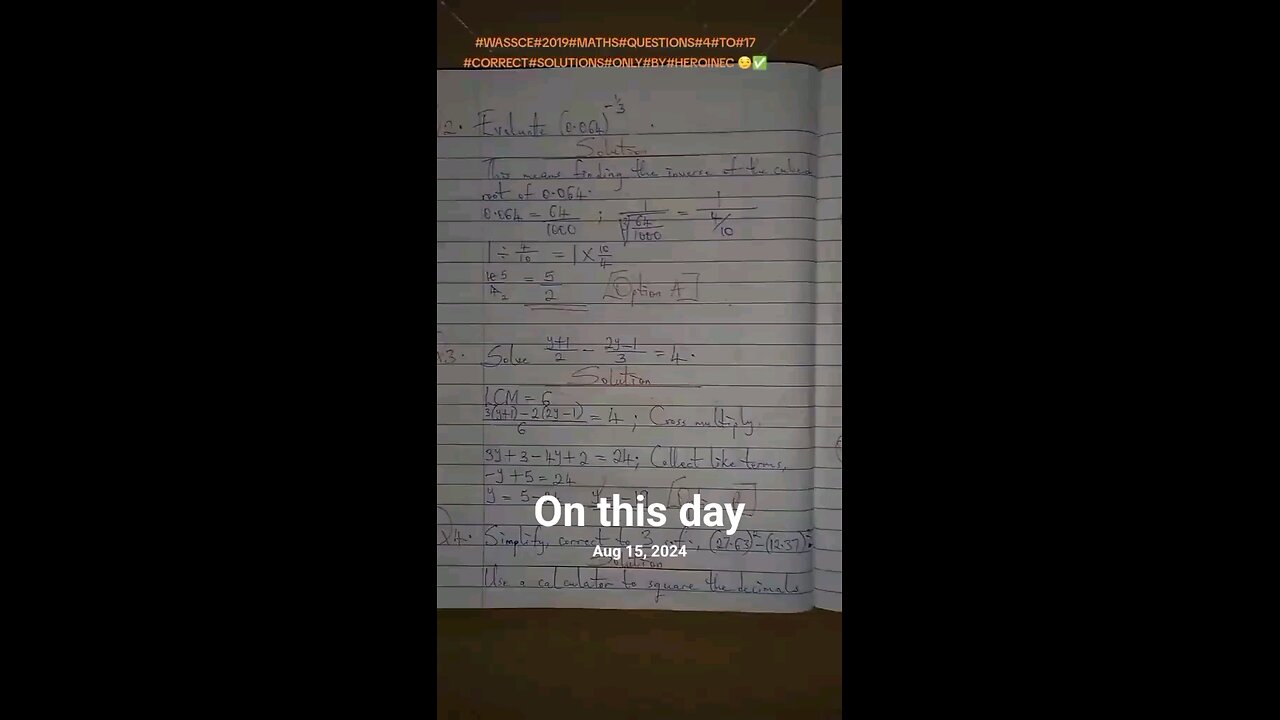 #WASSCE#2019#MATHS#QUESTIONS#4#TO#17
#CORRECT#SOLUTIONS#ONLY#BY#HEROINEC 😏✅
2. Evaluate (0.064)^-1/3
Solution
This means finding the inverse of the cubed
root of 0.064.
0.064 = 64/1000 ; 1/∛(64/1000) = 1/(4/10)
1 ÷ 4/10 = 1 × 10/4
10 5/4 2 = 5/2 [Option A]
3. Solve (y+1)/2 - (2y-1)/3 = 4.
Solution
LCM = 6
(3(y+1) - 2(2y-1))/6 = 4 ; Cross multiply.
3y + 3 - 4y + 2 = 24; Collect like terms,
-y + 5 = 24
y = 5 -
On this day
Aug 15, 2024
4. Simplify, correct to 3 (27.63)² - (12.37)²
Solution
Use a calculator to square the decimals